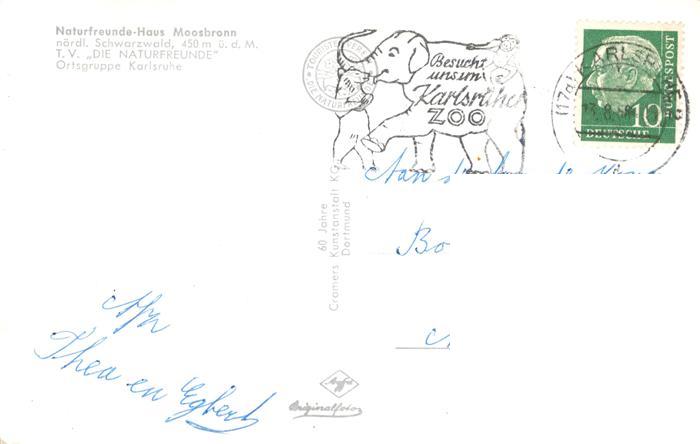 Naturfreunde-Haus Moosbronn
nördl. Schwarzwald, 450 m ü. d. M.
T. V. „DIE NATURFREUNDE"
Ortsgruppe Karlsruhe
Besucht
uns im
Karlsruher
ZOO
(17a) KARLSRUHE
10
DEUTSCHE
BUNDESPOST
Aan
Bo
c.
60 Jahre
Cramers Kunstanstalt KG
Dortmund
Thea en Egbert
Agfa
Originalfoto